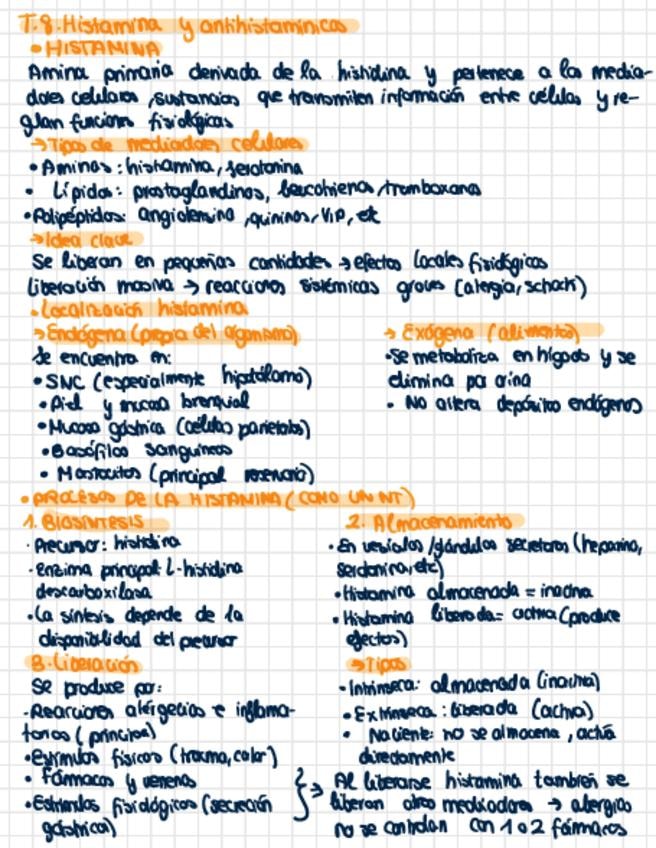 T.8. Histamina y antihistamínicos
• HISTAMINA
Amina primaria derivada de la histidina y pertenece a los media-
dores celulares, sustancias que transmiten información entre células y re-
gulan funciones fisiológicas
→ Tipos de mediadores celulares
• Aminas: histamina, serotonina
• Lípidos: prostaglandinas, leucotrienos, tromboxanos
• Polipéptidos: angiotensina, quininas, VIP, etc
→ Idea clave
Se liberan en pequeñas cantidades → efectos locales fisiológicos
Liberación masiva → reacciones sistémicas graves (alergia, schock)
• Localización histamina
→ Endógena (propia del organismo)
Se encuentra en:
• SNC (especialmente hipotálamo)
• Piel y mucosa bronquial
• Mucosa gástrica (células parietales)
• Basófilos sanguíneos
• Mastocitos (principal reservorio)
→ Exógena (alimentos)
• Se metaboliza en hígado y se
elimina por orina
• No altera depósito endógenos
• PROCESOS DE LA HISTAMINA (COMO UN NT)
1. BIOSÍNTESIS
· Precursor: histidina
· Enzima principal: L-histidina
descarboxilasa
• La síntesis depende de la
disponibilidad del precursor
2. Almacenamiento
• En vesículas/grándulos secretores (heparina,
serotonina, etc)
• Histamina almacenada = inactiva
• Histamina liberada = activa (produce
efectos)
3. Liberación
Se produce por:
· Reacciones alérgicas e inflama-
torias (principal)
• Estímulos físicos (trauma, calor)
• Fármacos y venenos
• Estímulos fisiológicos (secreción
gástrica)
→ Tipos
• Intrínseca: almacenada (inactiva)
• Extrínseca: liberada (activa)
• Naciente: no se almacena, actúa
directamente
} → Al liberarse histamina también se
liberan otros mediadores → alergias
no se controlan con 1 o 2 fármacos